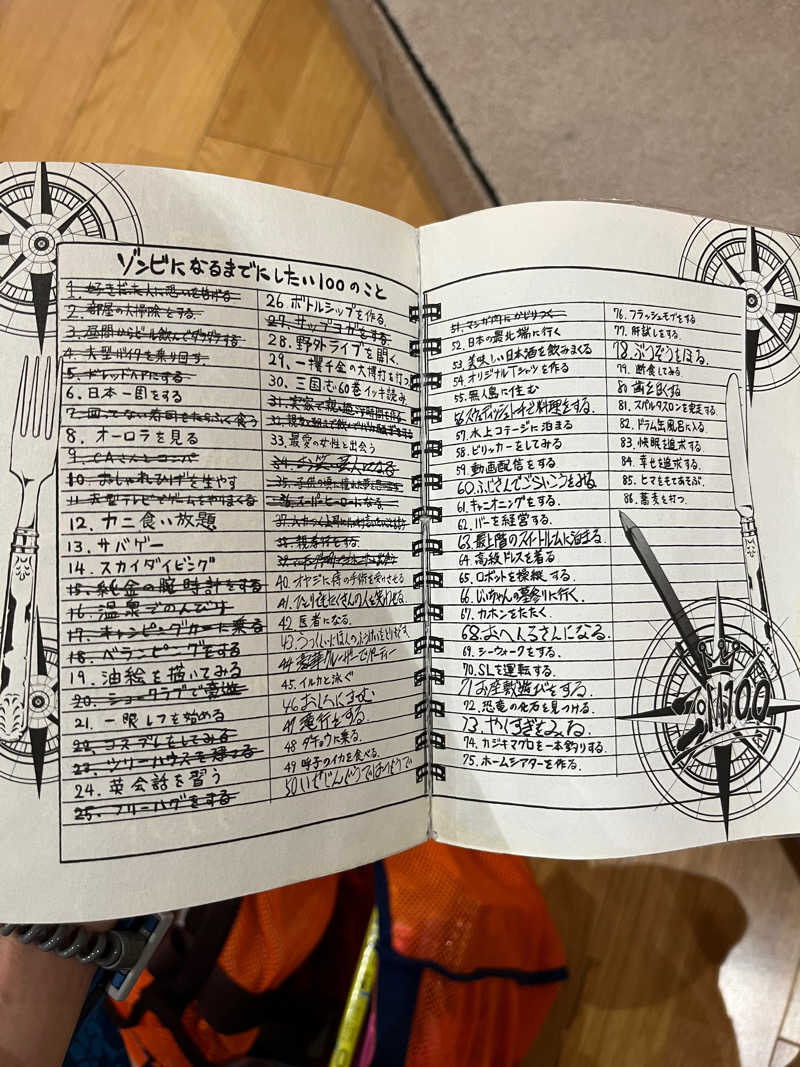 ゾンビになるまでにしたい100のこと
1. 好きだった人に思いを告げる
2. 部屋の大掃除をする
3. 昼間からビール飲んでダラダラする
4. 大型バイクを乗り回す
5. ドレッドヘアにする
6. 日本一周をする
7. 回ってない寿司をたらふく食う
8. オーロラを見る
9. CAさんとコンパ
10. おしゃれひげを生やす
11. 大型テレビでゲームをやりまくる
12. カニ食い放題
13. サバゲー
14. スカイダイビング
15. 純金の腕時計をする
16. 温泉でのんびり
17. キャンピングカーに乗る
18. ベランピングをする
19. 油絵を描いてみる
20. ショークラブで豪遊
21. 一眼レフを始める
22. コスプレをしてみる
23. ツリーハウスを建てる
24. 英会話を習う
25. フリーハグをする
26. ボトルシップを作る.
27. サップヨガをする
28. 野外ライブを聞く.
29. 一攫千金の大博打を打つ
30. 三国志60巻イッキ読み
31. 実家で親と過ごす時間を作る
32.
33. 最愛の女性と出会う
34. お笑い芸人になる
35.
36. スーパーヒーローになる
37.
38. 親孝行をする
39.
40. オヤジに痔の手術を受けさせる
41. ひとりでもたくさんの人を笑わせる.
42 医者になる.
43.
44 豪華クルーザーでパーティー
45. イルカと泳ぐ
46 おしろにすむ
47 滝行をする.
48 ダチョウに乗る.
49 呼子のイカを食べる.
50.
51. マンガ肉にかぶりつく
52. 日本の最北端に行く
53. 美味しい日本酒を飲みまくる
54. オリジナルTシャツを作る
55. 無人島に住む
56 スケボーで料理をする.
57. 水上コテージに泊まる
58. ビリッカーをしてみる
59. 動画配信をする
60. ふじさんでごらいこうをみる
61. キャニオニングをする.
62. バーを経営する.
63. 最上階のスイートルームに泊まる.
64. 高級ドレスを着る
65. ロボットを操縦する.
66. じいちゃんの墓参りに行く.
67. カホンをたたく.
68. おへんろさんになる.
69. シーウォークをする.
70. SLを運転する.
71 お座敷遊びをする.
72. 恐竜の化石を見つける.
73. やしまをみる.
74. カジキマグロを一本釣りする.
75. ホームシアターを作る.
76. フラッシュモブをする
77. 肝試しをする.
78. ぶつぞうをほる.
79. 断食してみる
80. 歯を白くする
81. スパルタスロンを完走する.
82. ドラム缶風呂に入る
83. 快眠を追求する
84. 幸せを追求する.
85. ヒマをもてあそぶ.
86. 蕎麦を打つ.
100